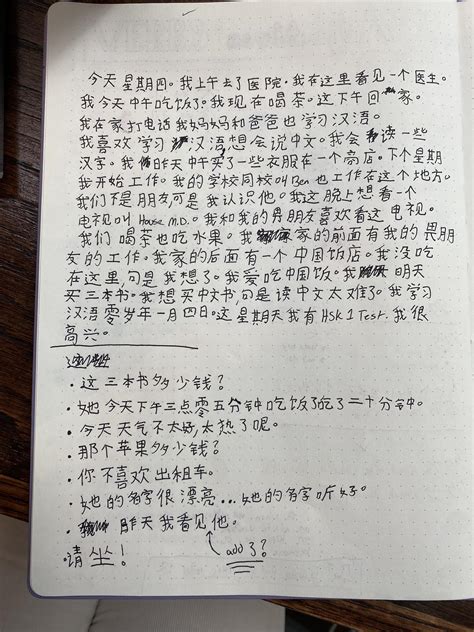 今天星期四。我上午去了医院。我在这里看见一个医生。
我今天中午吃饭了。我现在喝茶。这下午回家。
我在家打电话我妈妈和爸爸也学习汉语。
我喜欢学习汉语想会说中文。我会读一些
汉字。我昨天中午买了一些衣服在一个商店。下个星期
我开始工作。我的学校同校叫Ben也工作在这个地方。
我们不是朋友可是我认识他。我这晚上想看一个
电视叫 House M.D.。我和我的男朋友喜欢看这电视。
我们喝茶也吃水果。我家的前面有我的男朋
友的工作。我家的后面有一个中国饭店。我没吃
在这里,可是我想了。我爱吃中国饭。我明天
买三本书。我想买中文书可是读中文太难了。我学习
汉语零岁年一月四日。这星期天我有HSK 1 Test. 我很
高兴。
• 这三本书多少钱?
• 她今天下午三点零五分钟吃饭了吃了二十分钟。
• 今天天气不太好,太热了呢。
• 那个苹果多少钱?
• 你不喜欢出租车。
• 她的名字很漂亮...她的名字听好。
• 昨天我看见他。
add 了?
•请坐!